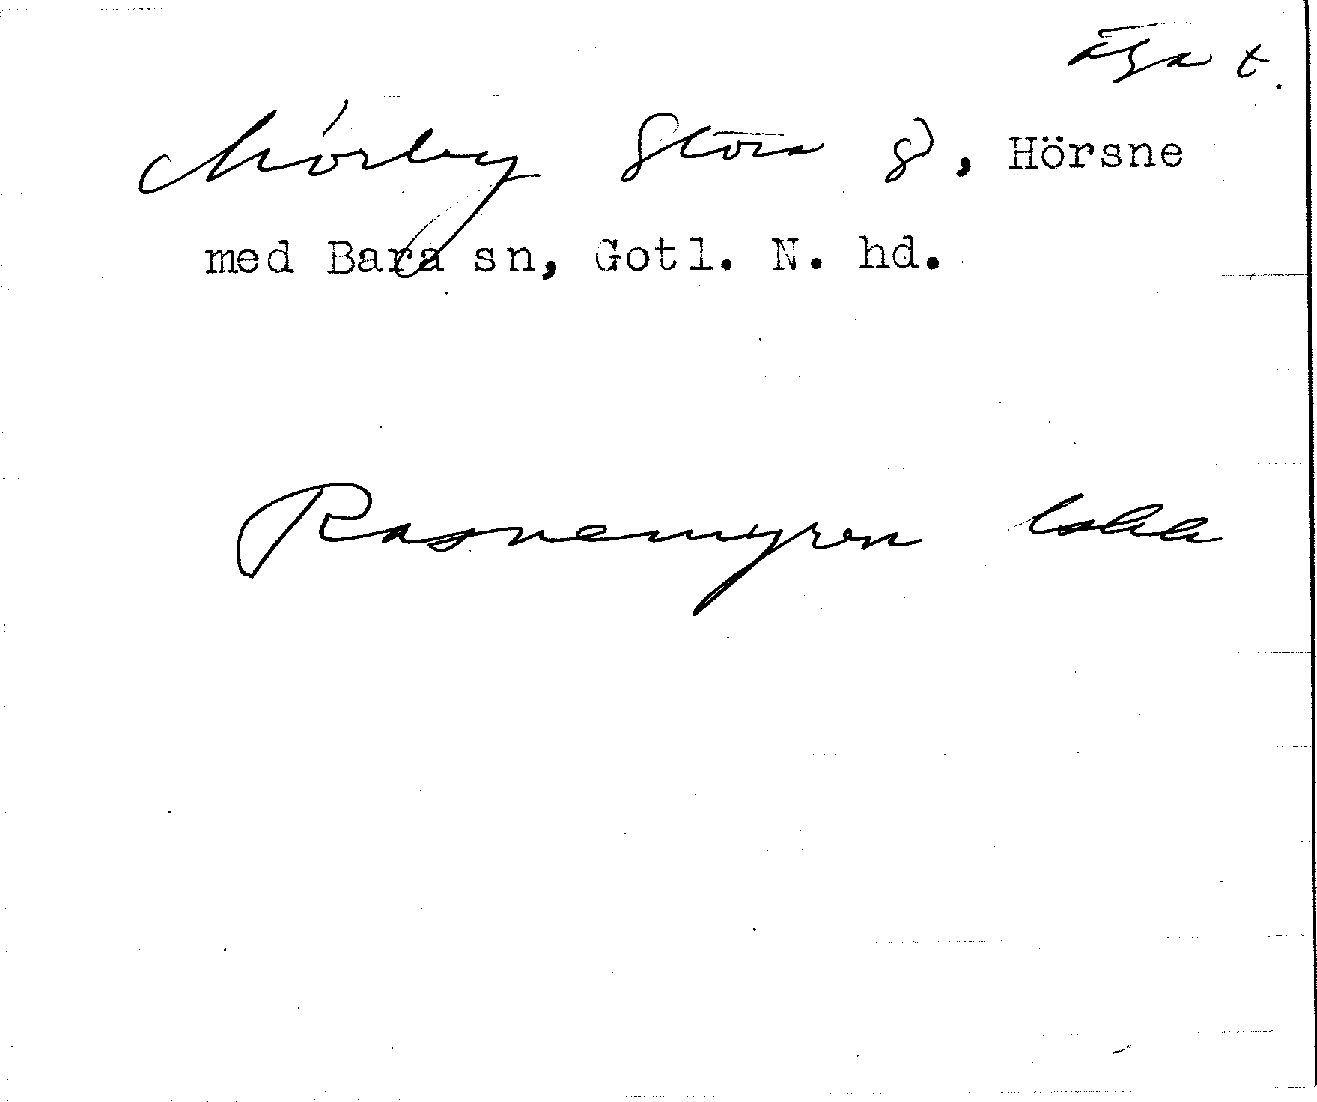 Äga t.
Mörby Stora gd, Hörsne
med Bara sn, Gotl. N. hd.
Rasnemyren